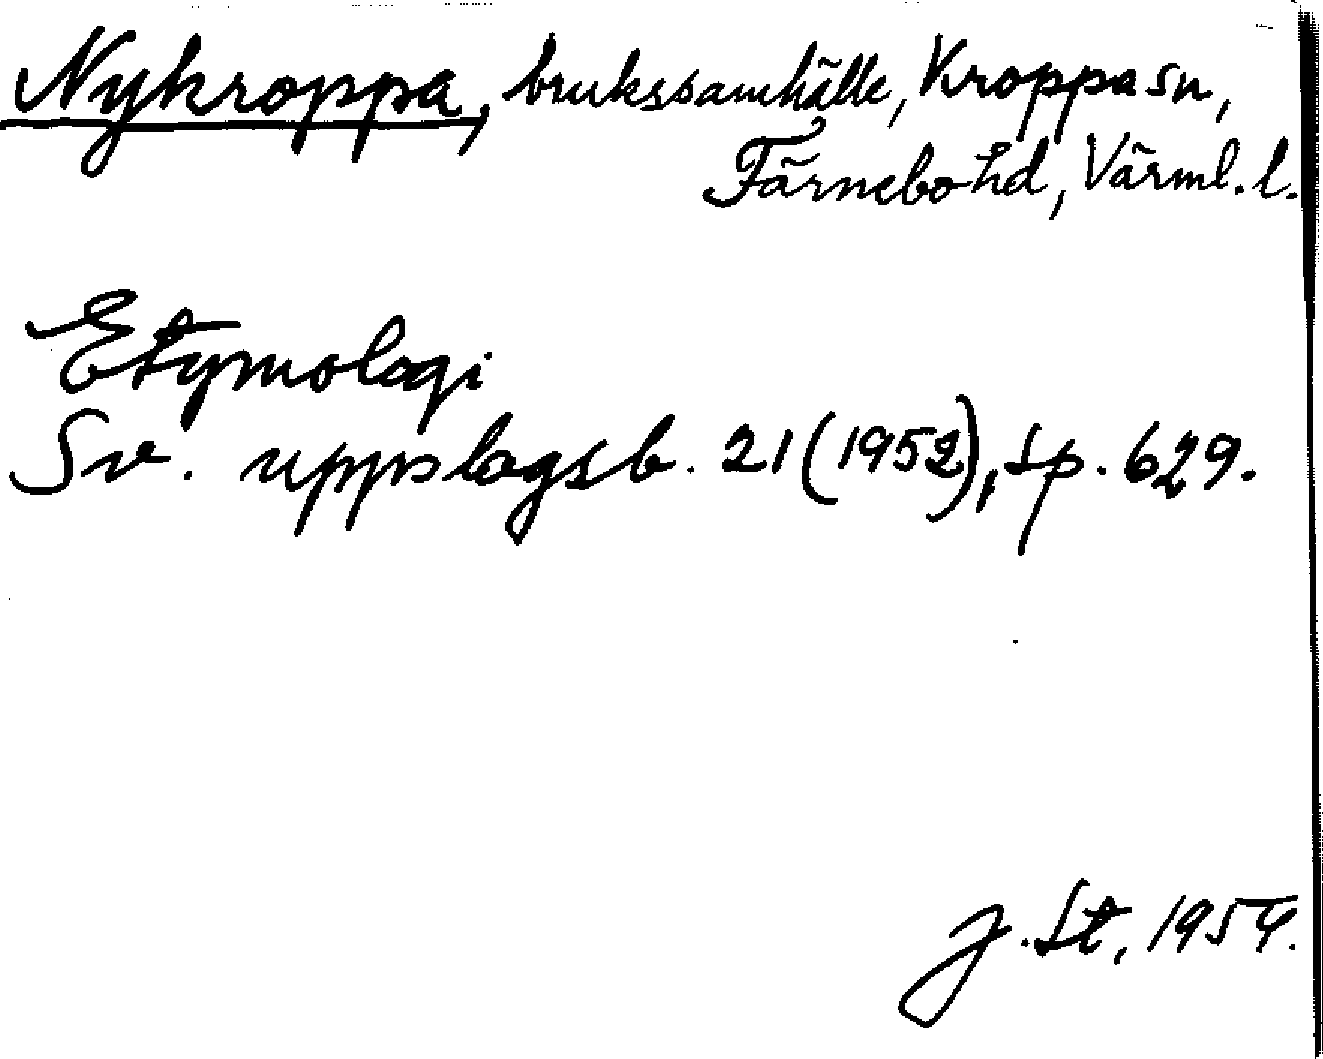 Nykroppa, brukssamhälle, Kroppa sn,
Färnebo hd, Värml. l.
Etymologi
Sv. uppslagsb. 21 (1952), sp. 629.
J. St, 1954.